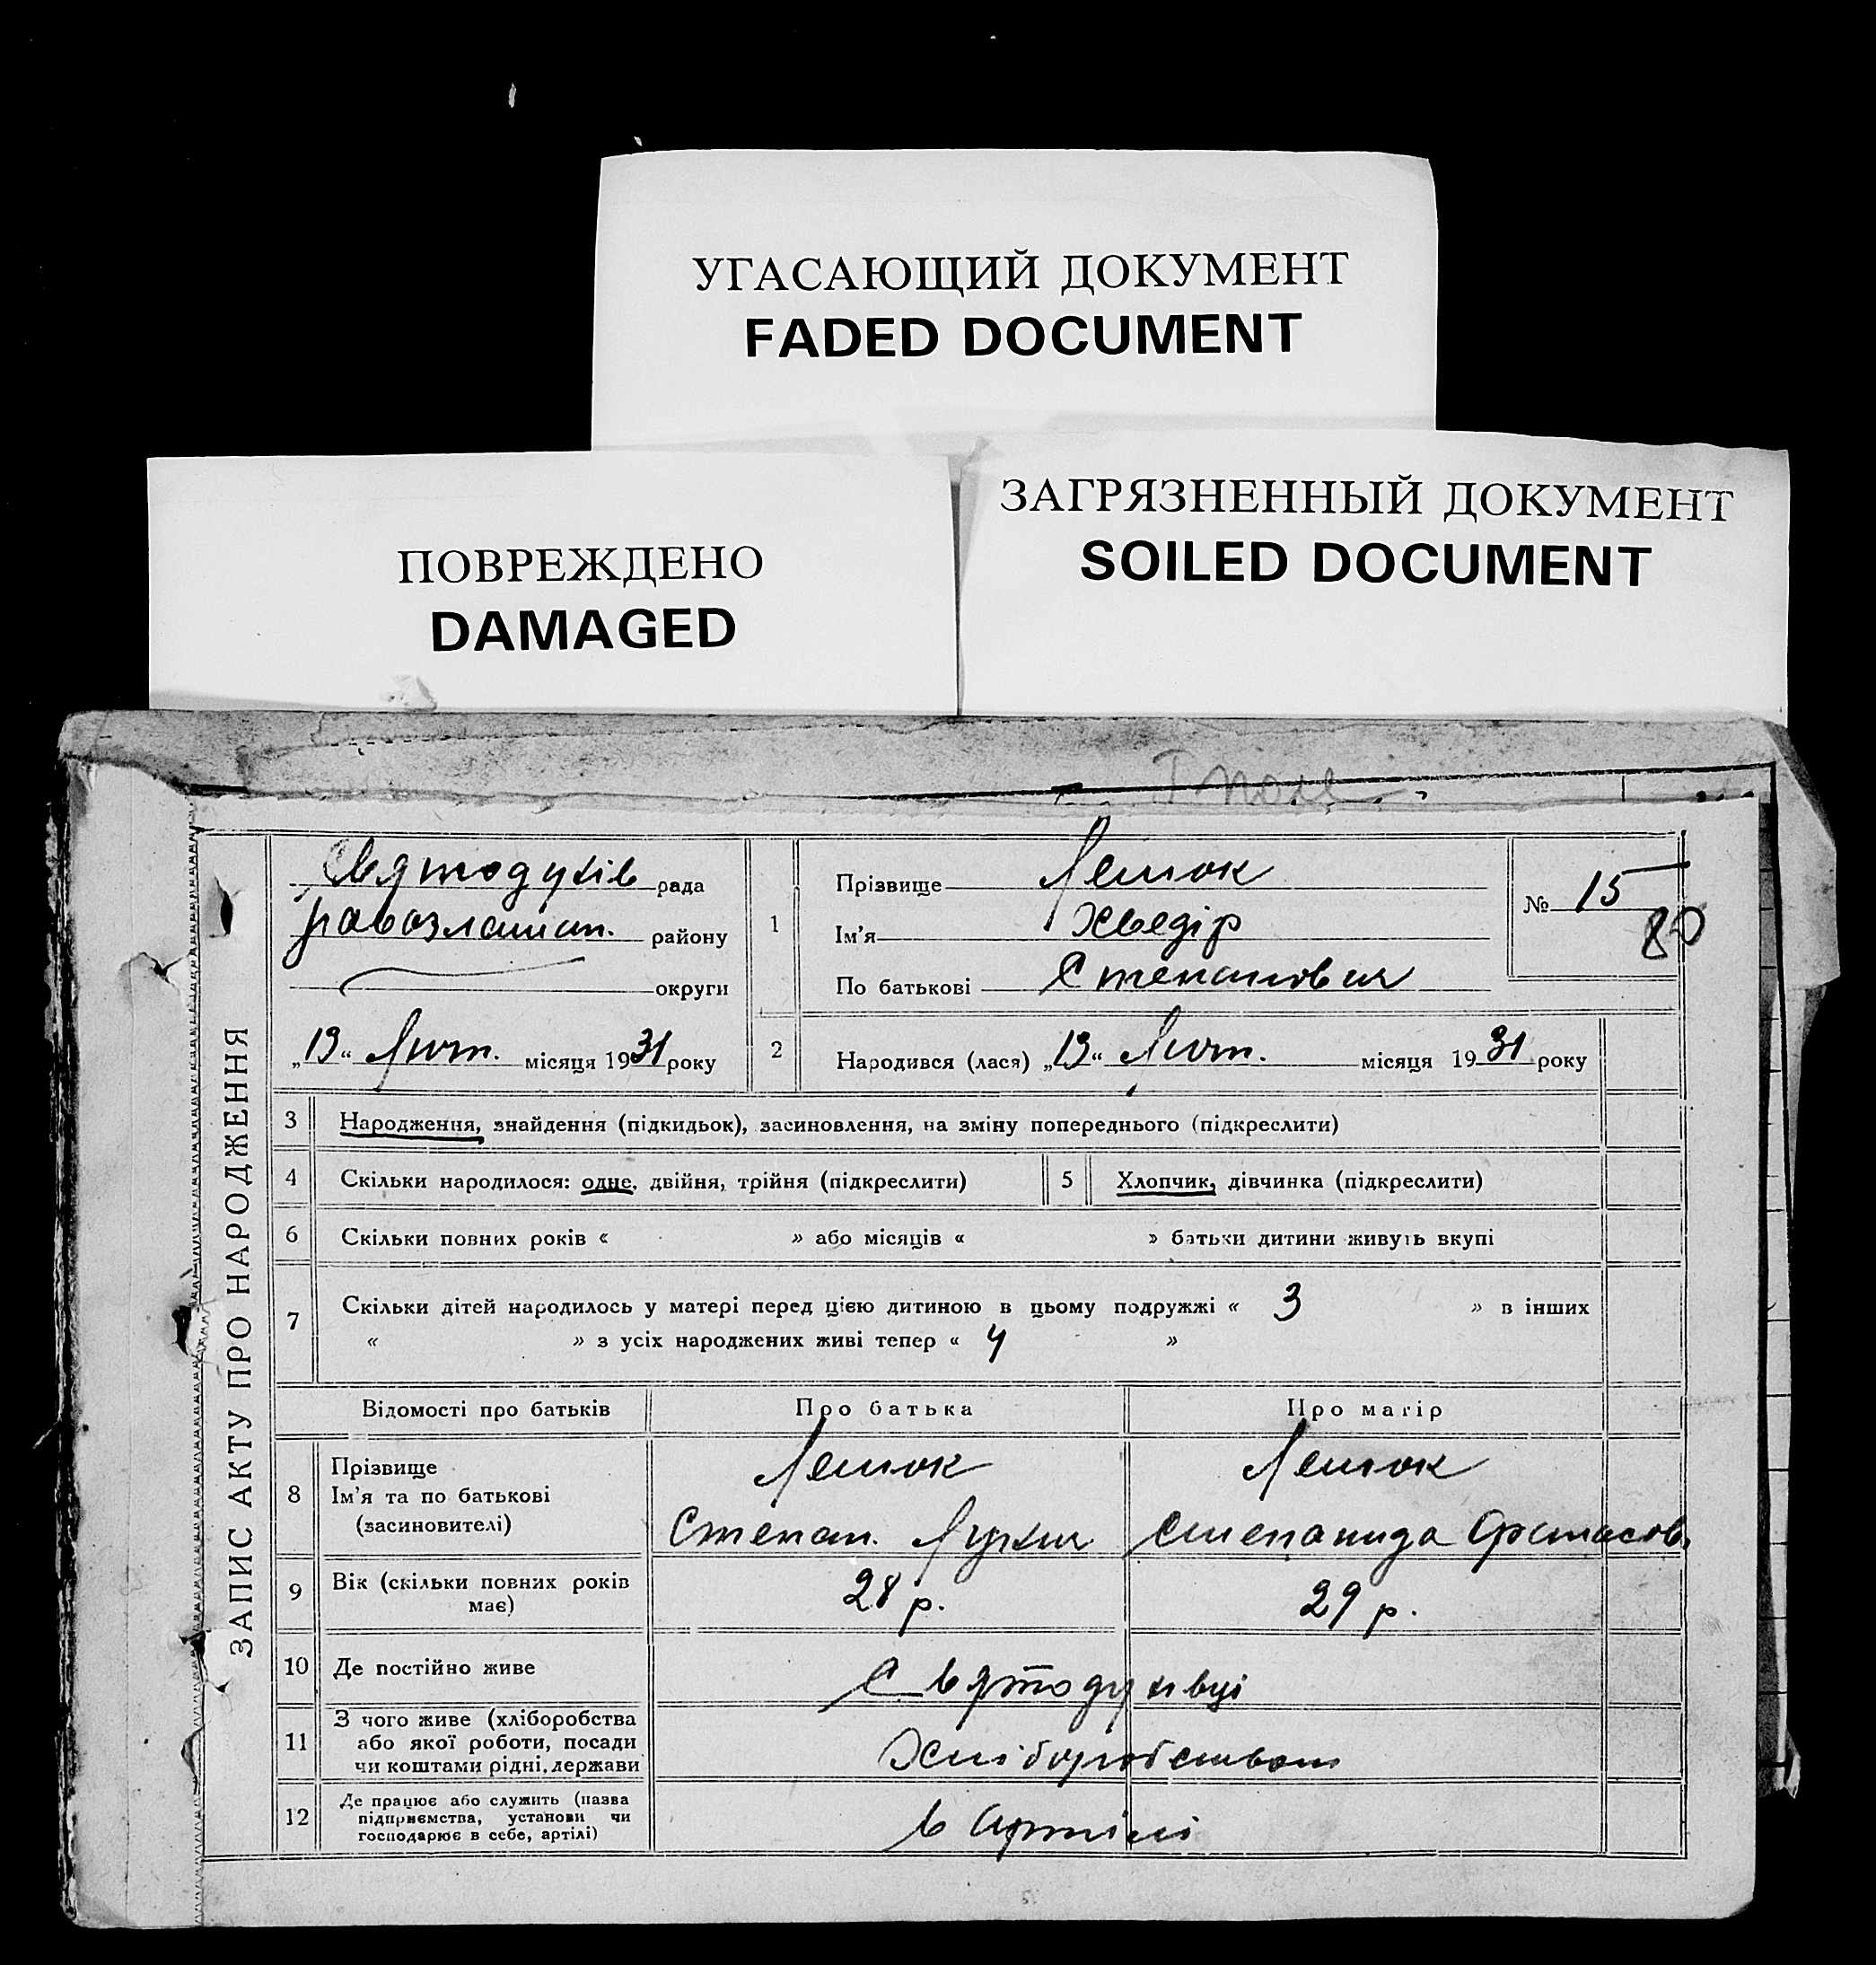 УГАСАЮЩИЙ ДОКУМЕНТ
FADED DOCUMENT
ПОВРЕЖДЕНО
DAMAGED
ЗАГРЯЗНЕННЫЙ ДОКУМЕНТ
SOILED DOCUMENT
ЗАПИС АКТУ ПРО НАРОДЖЕННЯ
Святодухів рада
району
округи
„19“ Лют. місяця 1931 року
1
Прізвище Лешок
Ім'я Хведір
По батькові Степанович
№ 15
80
2
Народився (лася) „19“ Лют. місяця 1931 року
3 Народження, знайдення (підкидьок), засиновлення, на зміну попереднього (підкреслити)
4 Скільки народилося: одне, двійня, трійня (підкреслити)
5 Хлопчик, дівчинка (підкреслити)
6 Скільки повних років « » або місяців « » батьки дитини живуть вкупі
7 Скільки дітей народилось у матері перед цією дитиною в цьому подружжі « 3 » в інших
« » з усіх народжених живі тепер « 4 »
Відомості про батьків Про батька Про матір
8 Прізвище
Ім'я та по батькові
(засиновителі)
Лешок
Степан.
Лешок
Степанида
9 Вік (скільки повних років
має)
28 р. 29 р.
10 Де постійно живе
Святодухівці
11 З чого живе (хліборобства
або якої роботи, посади
чи коштами рідні, держави
Хліборобством
12 Де працює або служить (назва
підприємства, установи чи
господарює в себе, артілі)
в Артілі